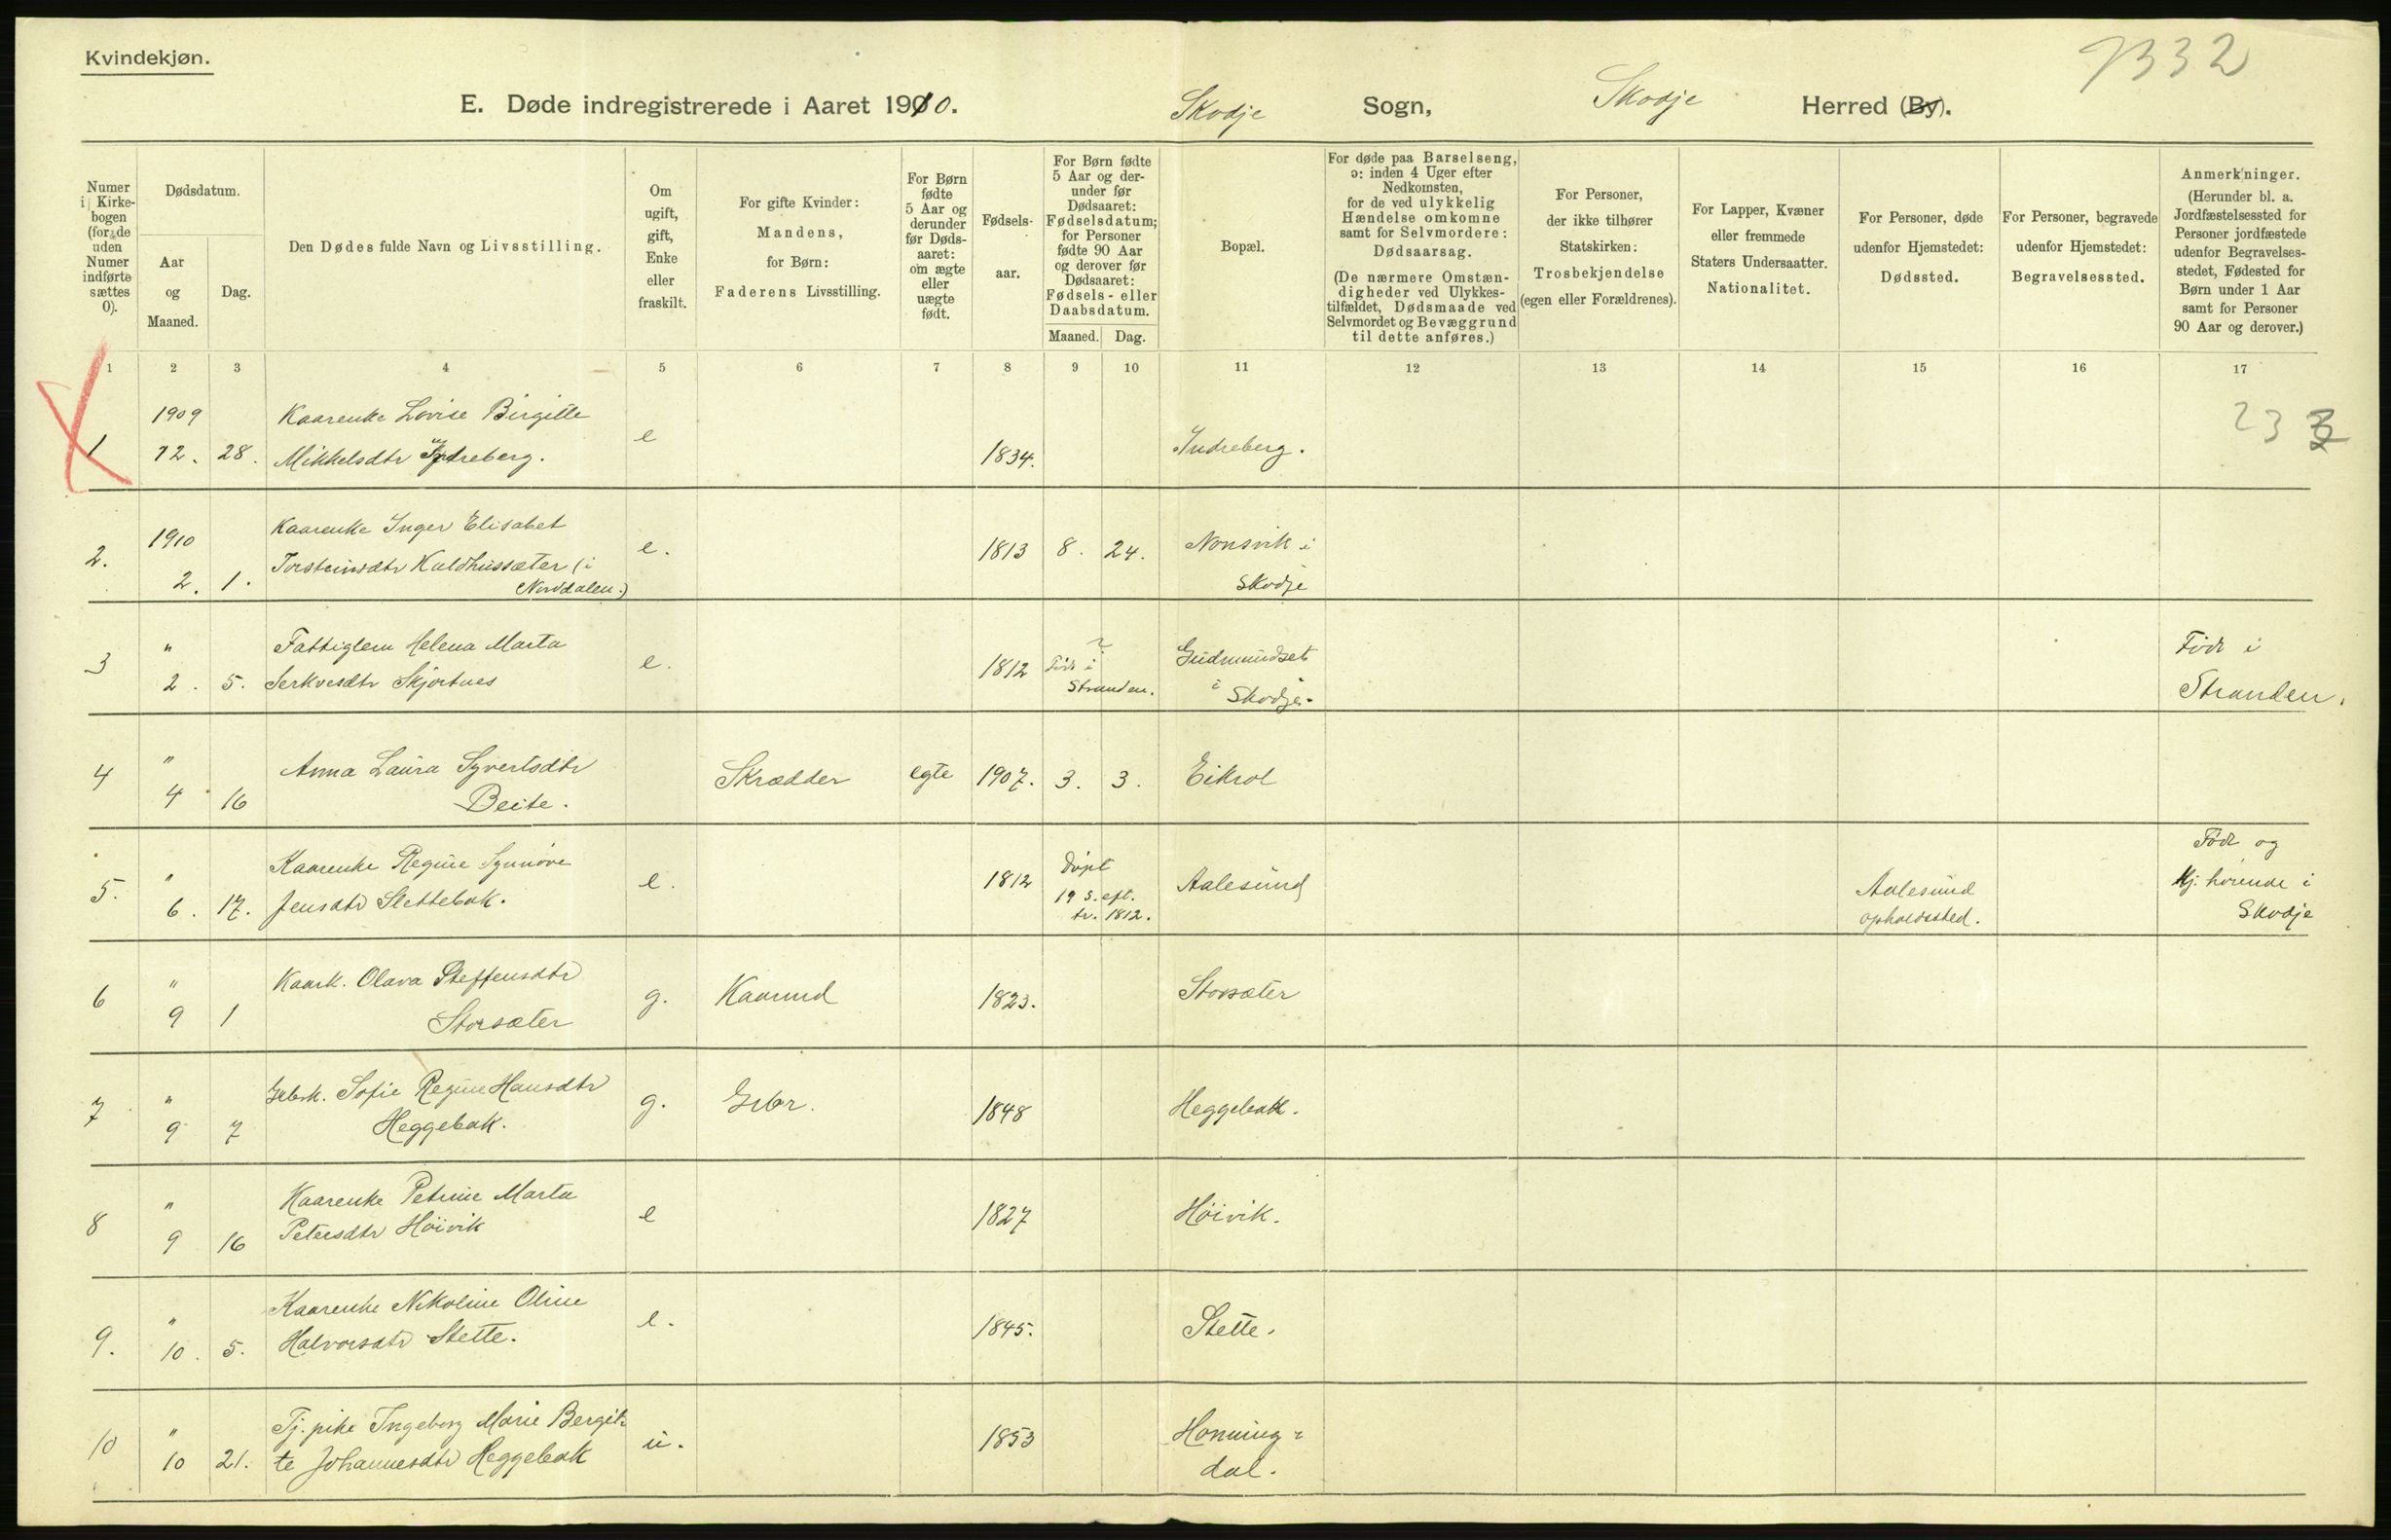 Kvindekjøn.
7332
E. Døde indregistrerede i Aaret 1910. Skodje Sogn, Skodje Herred (By).
Numer i Kirke-bogen (for de uden Numer indførte sættes 0).
Dødsdatum.
Aar og Maaned.
Dag.
Den Dødes fulde Navn og Livsstilling.
Om ugift, gift, Enke eller fraskilt.
For gifte Kvinder: Mandens, for Børn: Faderens Livsstilling.
For Børn fødte 5 Aar og derunder før Døds-aaret: om ægte eller uægte født.
Fødsels-aar.
For Børn fødte 5 Aar og der-under før Dødsaaret: Fødselsdatum; for Personer fødte 90 Aar og derover før Dødsaaret: Fødsels- eller Daabsdatum.
Maaned. Dag.
Bopæl.
For døde paa Barselseng, ɔ: inden 4 Uger efter Nedkomsten, for de ved ulykkelig Hændelse omkomne samt for Selvmordere: Dødsaarsag.
(De nærmere Omstæn-digheder ved Ulykkes-tilfældet, Dødsmaade ved Selvmordet og Bevæggrund til dette anføres.)
For Personer, der ikke tilhører Statskirken: Trosbekjendelse (egen eller Forældrenes).
For Lapper, Kvæner eller fremmede Staters Undersaatter. Nationalitet.
For Personer, døde udenfor Hjemstedet: Dødssted.
For Personer, begravede udenfor Hjemstedet: Begravelsessted.
Anmerkninger. (Herunder bl. a. Jordfæstelsessted for Personer jordfæstede udenfor Begravelses-stedet, Fødested for Børn under 1 Aar samt for Personer 90 Aar og derover.)
1 2 3 4 5 6 7 8 9 10 11 12 13 14 15 16 17
1909 Kaarenke Lovise Birgitte
1 12. 28. Mikkelsdtr Indreberg. e 1834. Indreberg. 23
1910 Kaarenke Inger Elisabet
2. 2. 1. Torsteinsdtr Kuldhussæter (i e. 1813 8. 24. Nonsvik i
Norddalen.) Skodje
" Fattiglem Helena Marta ? Født i
3 2. 5. Serkvesdtr Skjortnes e. 1812 Født i Gudmundset
Stranden. i Skodje. Stranden.
4 " Anna Laura Syvertsdtr Skrædder egte 1907. 3. 3. Eikrol
4 16 Beite.
" Kaarenke Regine Synnøve Døpt Født og
5. 6. 17. Jensdtr Slettebak. e. 1812 19 s. eft. Aalesund Aalesund Hj. hørende i
tr. 1812. opholdssted. Skodje
" Kaark. Olava Steffensdtr
6 9 1 Storsæter g. Kaarmd 1823. Storsæter
" Gbrk. Sofie Regine Hansdtr
7 9 7 Heggebak. g. Gbr. 1848 Heggebak.
" Kaarenke Petrine Marta
8 9 16 Petersdtr Høivik e 1827 Høivik.
" Kaarenke Nikoline Oline
9. 10. 5. Halvorsdtr Stette. e. 1845. Stette.
" Tj. pike Ingeborg Marie Bergit-
10 10 21. te Johannesdtr Heggebak u. 1853 Honning-
dal.